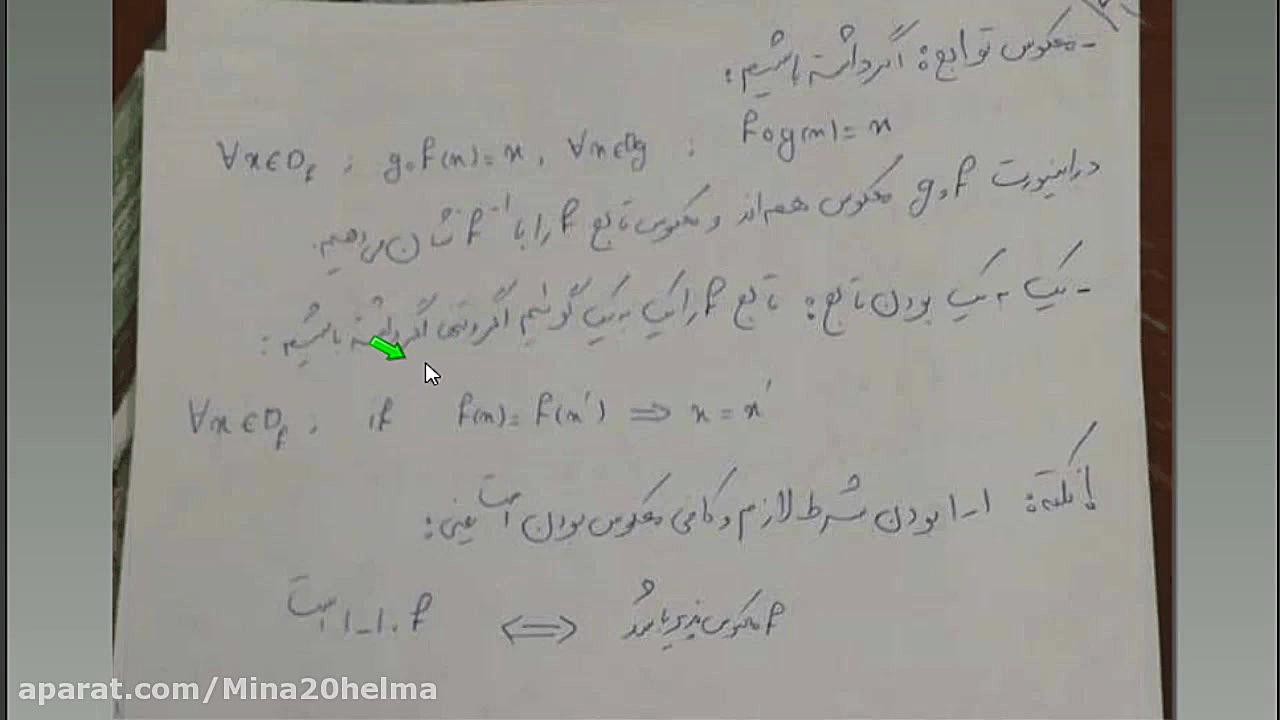 - معکوس توابع: اگر داشته باشیم:
∀x∈D_f ; gof(x)=x , ∀x∈Dg ; fog(x)=x
در اینصورت f و g معکوس هم اند و معکوس تابع f را با f⁻¹ نشان می دهیم.
- یک به یک بودن تابع: تابع f را یک به یک گوئیم اگر و تنها اگر داشته باشیم:
∀x∈D_f ; if f(x)=f(x') ⇒ x=x'
نکته: ۱-۱ بودن شرط لازم و کافی معکوس بودن است یعنی:
f معکوس پذیر باشد ⇔ f ، ۱-۱ است
aparat.com/Mina20helma